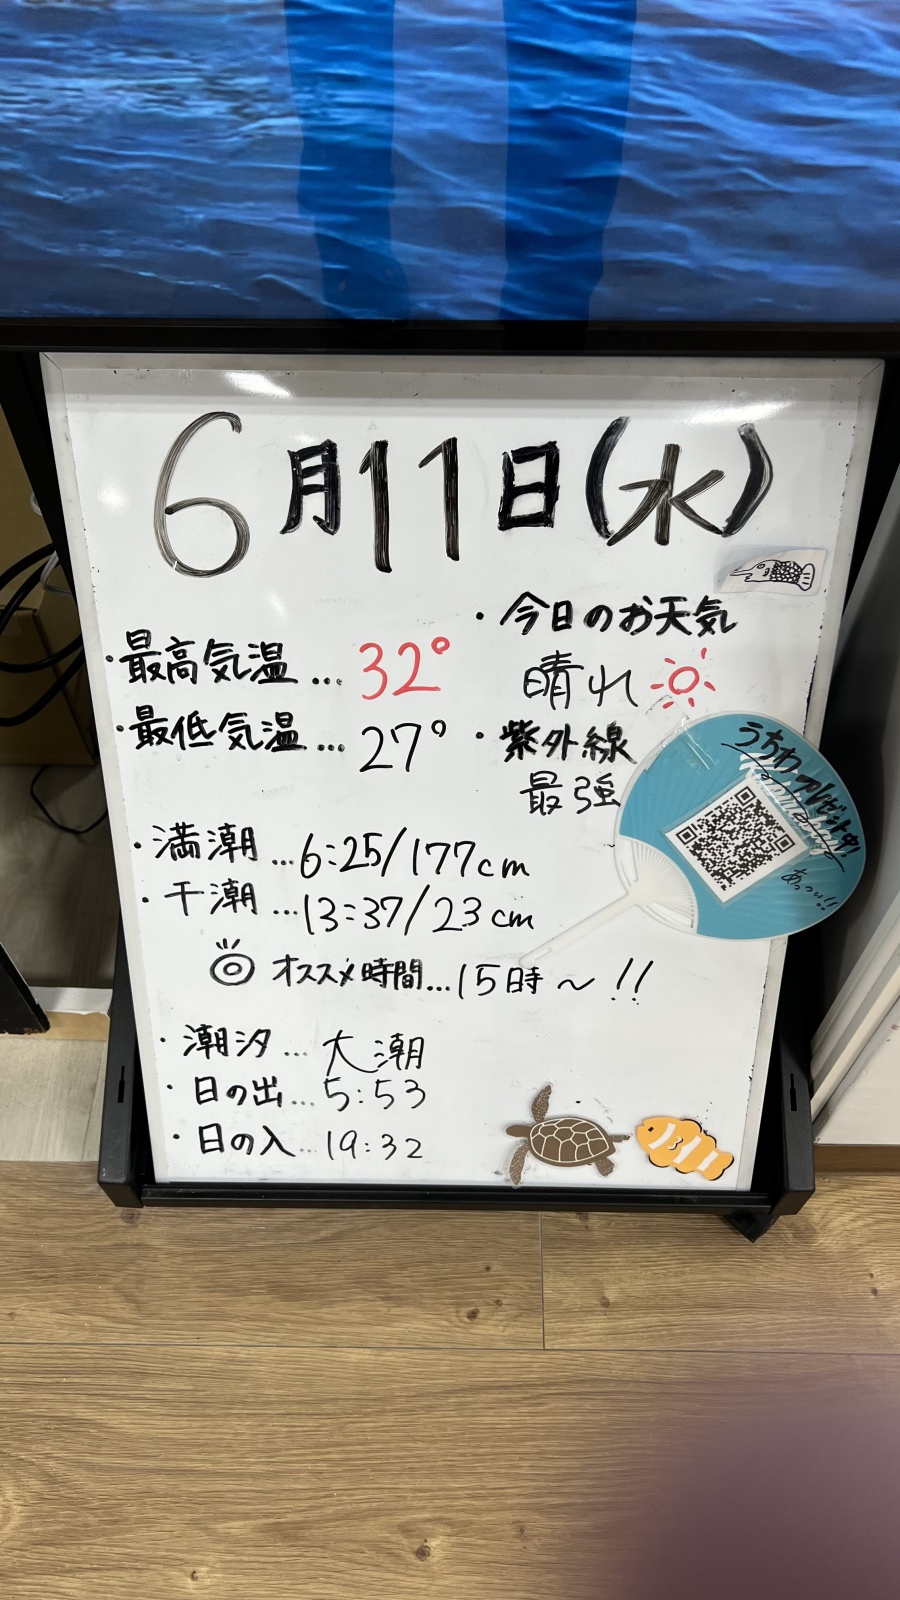 6月11日(水)
・最高気温…32°
・最低気温…27°
・今日のお天気
晴れ
・紫外線
最強
うちわプレゼント中!
あっつい!!
・満潮…6:25/177cm
・干潮…13:37/23cm
◎オススメ時間…15時～!!
・潮汐…大潮
・日の出…5:53
・日の入…19:32